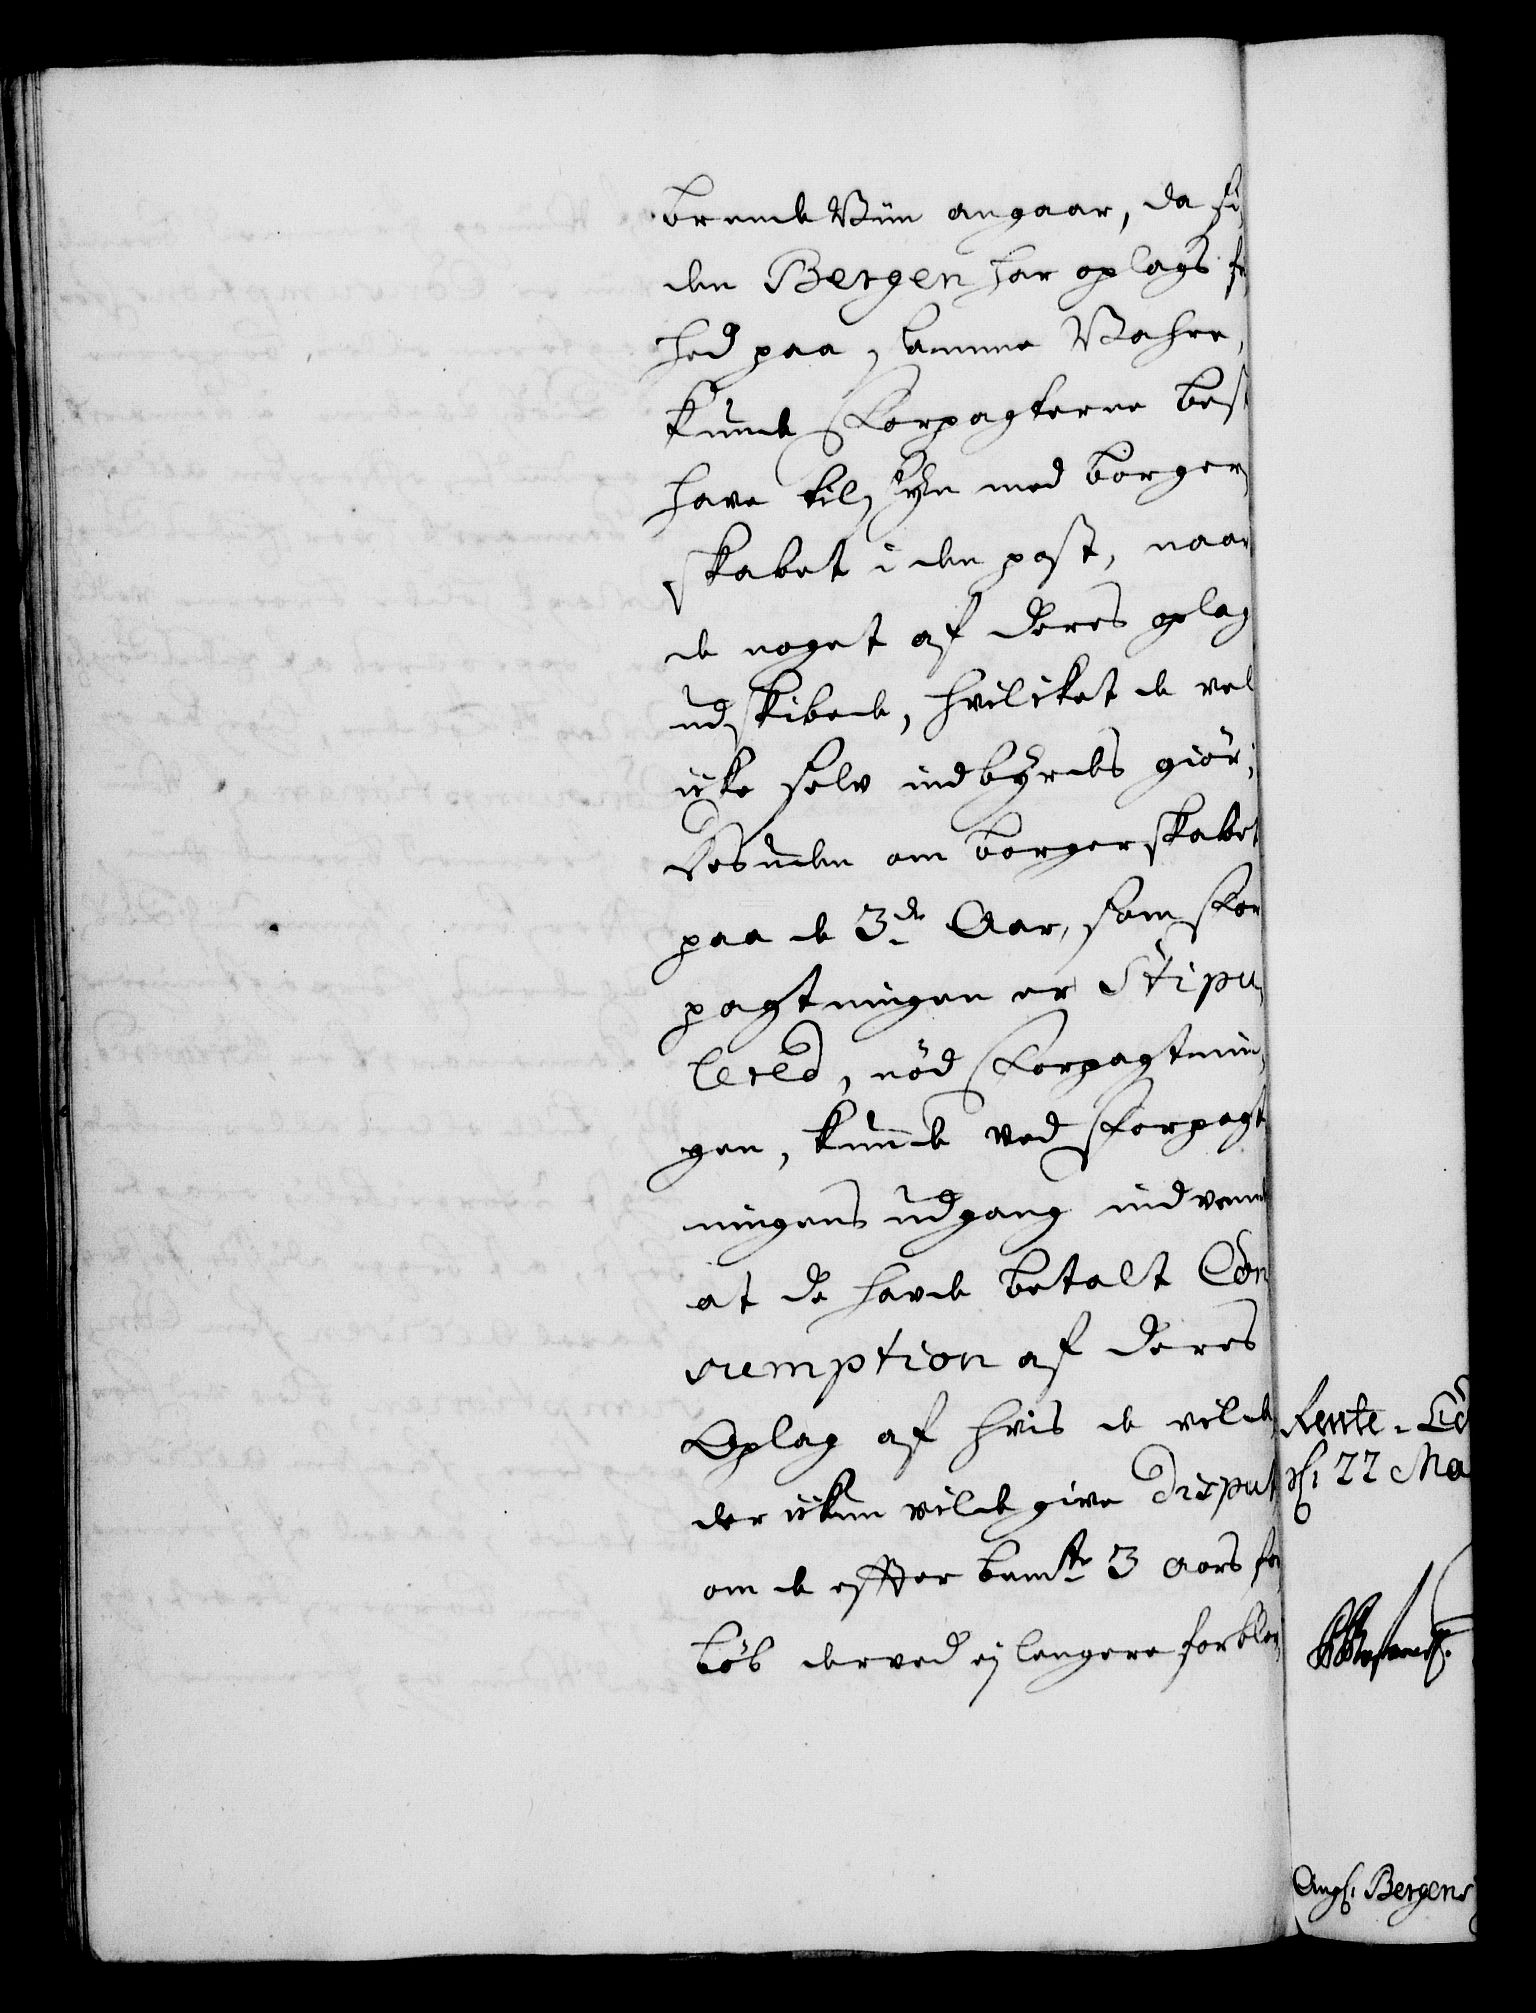 brende Viin angaar, da si
den Bergen har oplags fri
hed paa samme Vahre,
kunde Forpagterne best
have tilsyn med borger
skabet i den post, naar
de noget af deres oplag
udskibede, hvilcket de vel
icke selv indbyrdes giør;
Desuden om borgerskabet
paa de 3de Aar, som For
pagtningen er Stipu
lered, nød Forpagtnin
gen, kunde ved Forpagt
ningens udgang indvende
at de hafde betalt Con
sumption af deres
Oplag af hvis de vilde
der ickun vilde give Disput
om de effter bemte 3 Aars for
løb derved ej lengere forblev
Rente-Ca
d: 22 Ma
Ang: Bergens